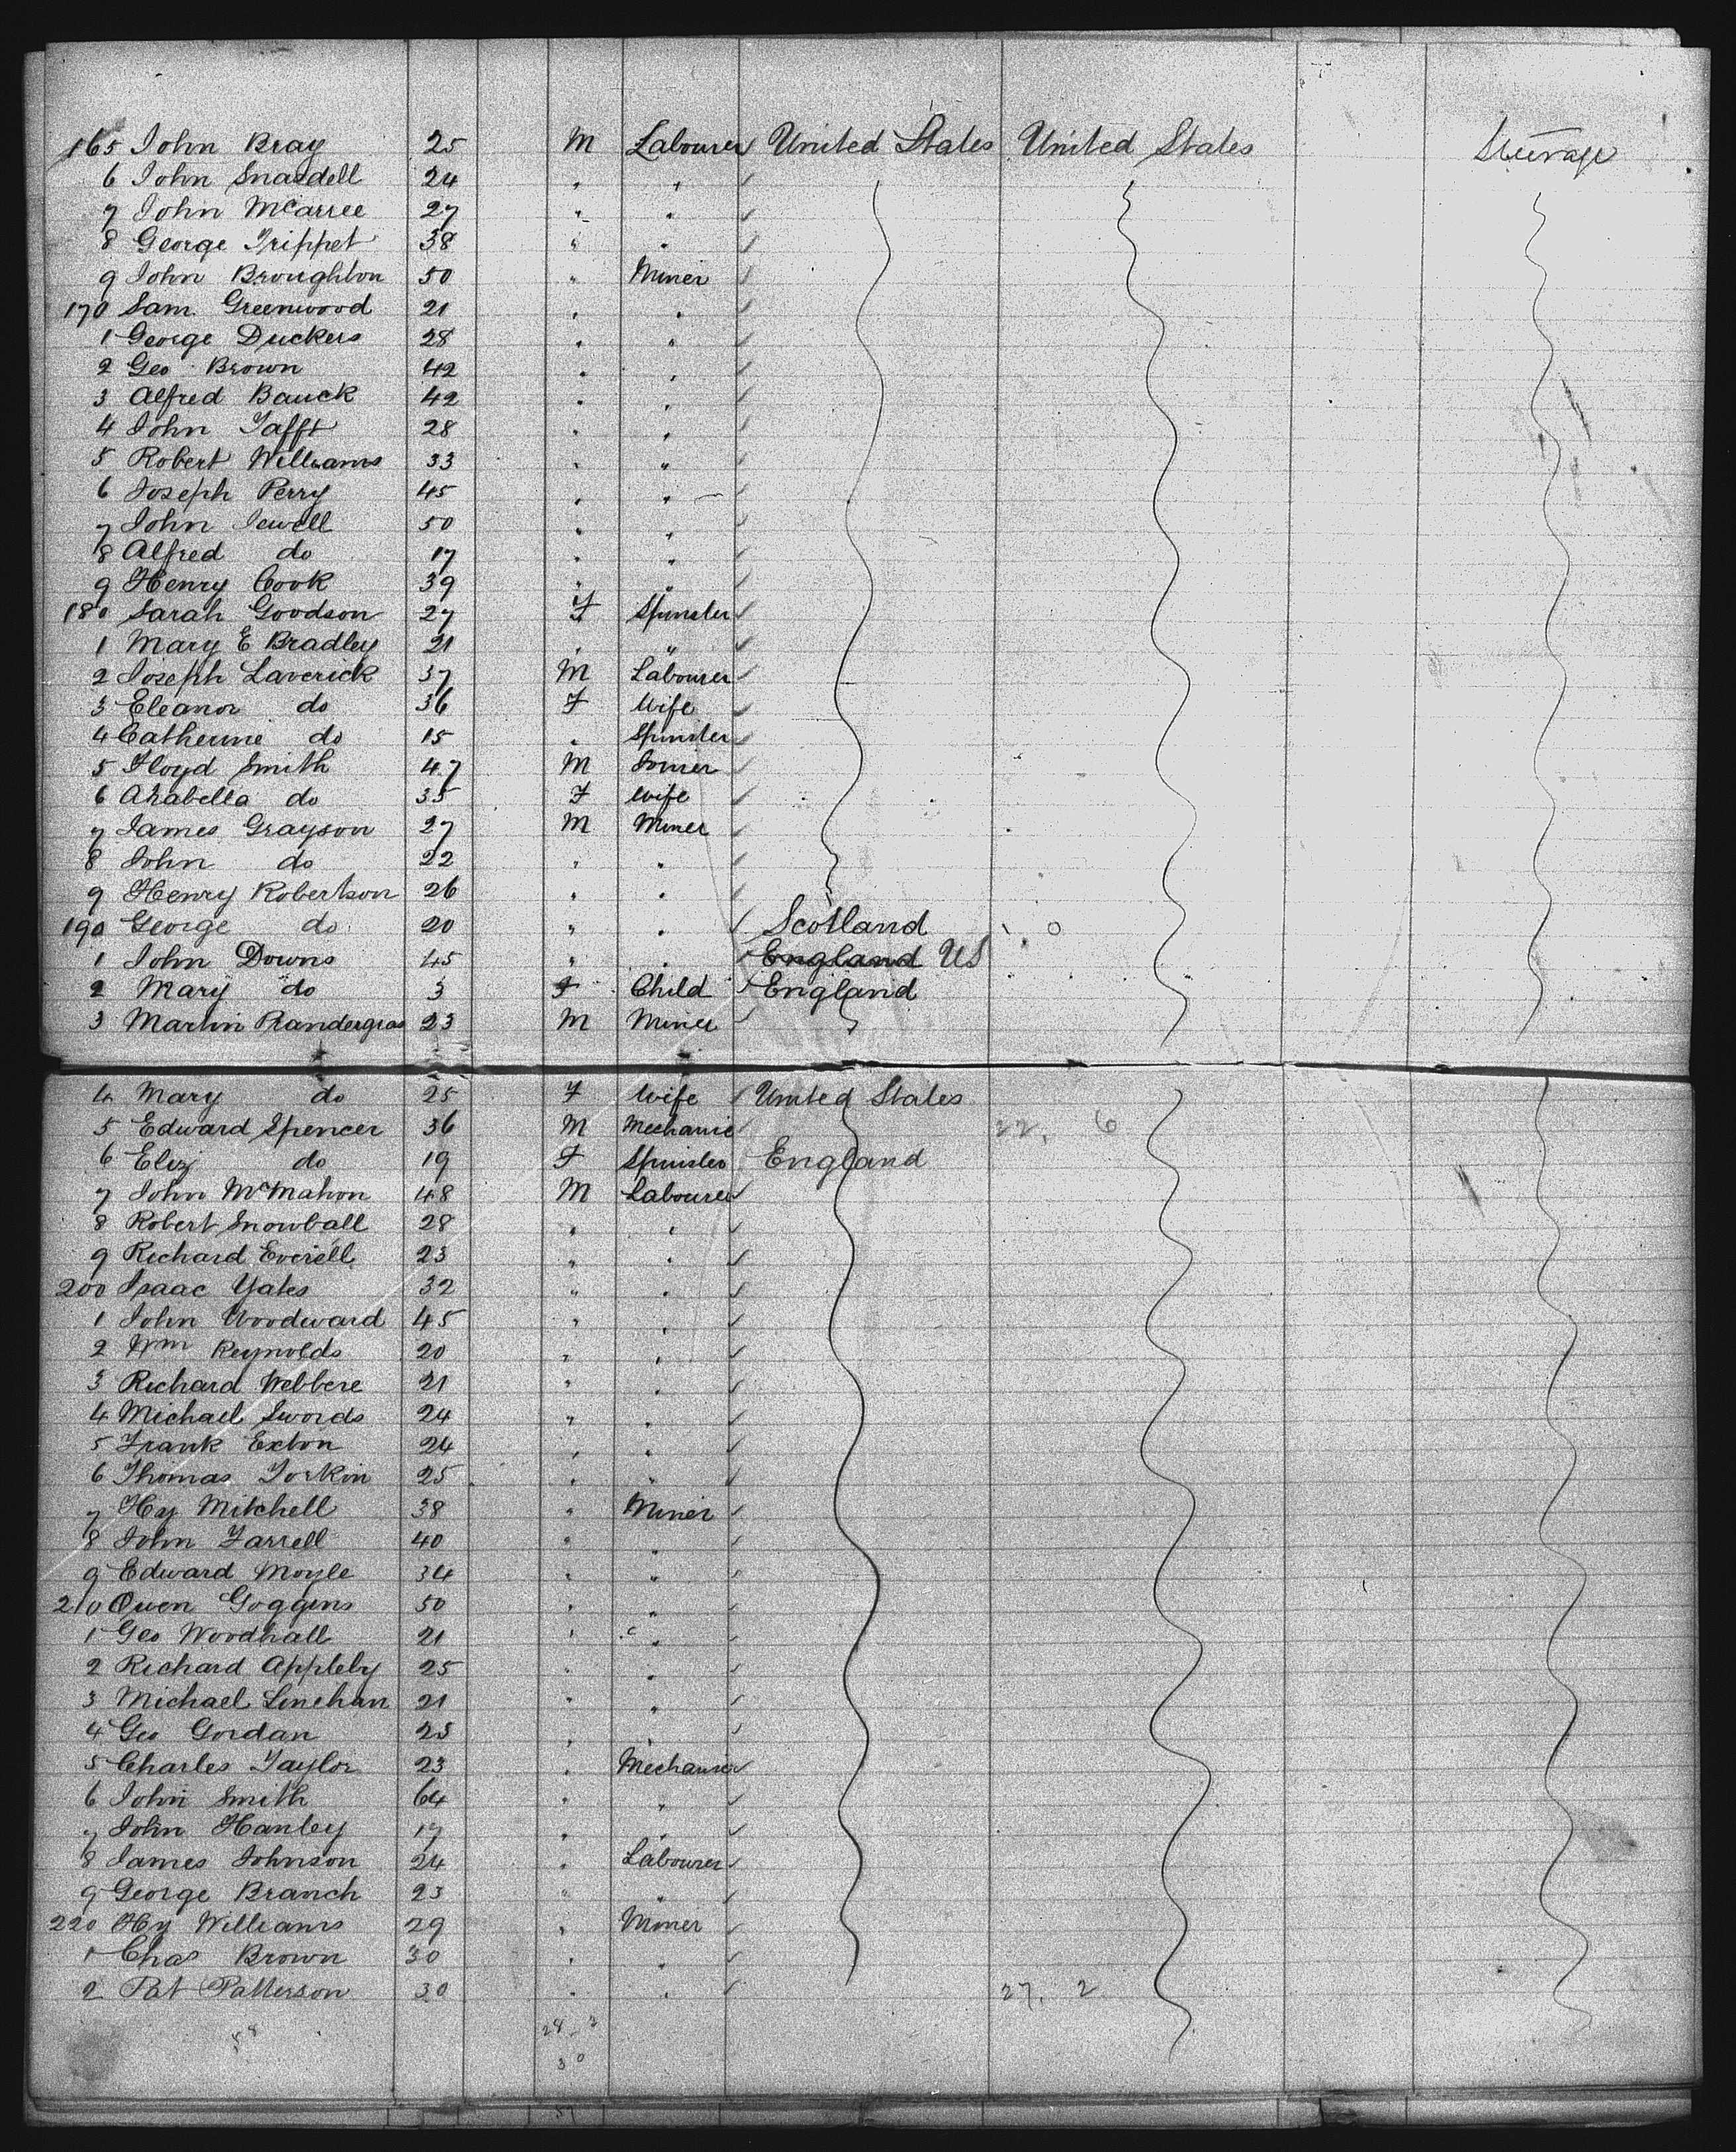 165 John Bray 25 M Labourer United States United States Steerage
6 John Snasdell 24 " "
7 John McArree 27 " "
8 George Trippet 38 " "
9 John Broughton 50 " Miner
170 Sam. Greenwood 21 " "
1 George Duckers 28 " "
2 Geo Brown 42 " "
3 Alfred Bauck 42 " "
4 John Tafft 28 " "
5 Robert Williams 33 " "
6 Joseph Perry 45 " "
7 John Jewell 50 " "
8 Alfred do 17 " "
9 Henry Cook 39 " "
180 Sarah Goodson 27 F Spinster
1 Mary E Bradley 21 " "
2 Joseph Laverick 37 M Labourer
3 Eleanor do 36 F Wife
4 Catherine do 15 " Spinster
5 Floyd Smith 47 M Joiner
6 Arabella do 35 F Wife
7 James Grayson 27 M Miner
8 John do 22 " "
9 Henry Robertson 26 " "
190 George do 20 " " Scotland
1 John Downs 45 " " England US
2 Mary do 3 F Child England
3 Martin Prandergras 23 M Miner
4 Mary do 25 F Wife United States
5 Edward Spencer 36 M Mechanic 22. 6
6 Eliz do 19 F Spinster England
7 John McMahon 48 M Labourer
8 Robert Snowball 28 " "
9 Richard Everell 23 " "
200 Isaac Yates 32 " "
1 John Woodward 45 " "
2 Wm Reynolds 20 " "
3 Richard Webbere 21 " "
4 Michael Swords 24 " "
5 Frank Exton 24 " "
6 Thomas Torkin 25 " "
7 Hy Mitchell 38 " Miner
8 John Farrell 40 " "
9 Edward Moyle 34 " "
210 Owen Goggins 50 " "
1 Geo Woodhall 21 " "
2 Richard Appleby 25 " "
3 Michael Linehan 21 " "
4 Geo Gordan 25 " "
5 Charles Taylor 23 " Mechanic
6 John Smith 64 " "
7 John Hanley 17 " "
8 James Johnson 24 " Labourer
9 George Branch 23 " "
220 Hy Williams 29 " Miner
1 Chas Brown 30 " "
2 Pat Patterson 30 " " 27. 2
58 28 2
30